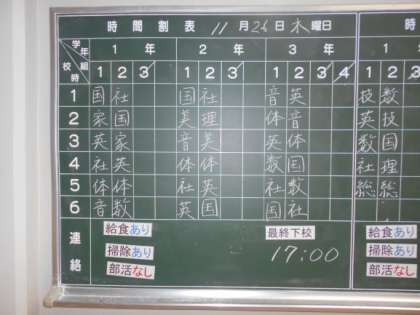 時間割表 11月26日木曜日 時
学年組 校時 1年 2年 3年
1 2 3 1 2 3 1 2 3 4 1 2
1 国 社 国 社 音 英 技 数
2 家 国 美 理 体 音 英 技
3 英 家 音 美 英 体 数 国
4 社 英 体 体 数 国 社 理
5 体 体 社 英 社 数 総 総
6 音 数 英 国 国 社
連絡 給食あり 最終下校 給食あり
掃除あり 17:00 掃除あり
部活なし 部活なし